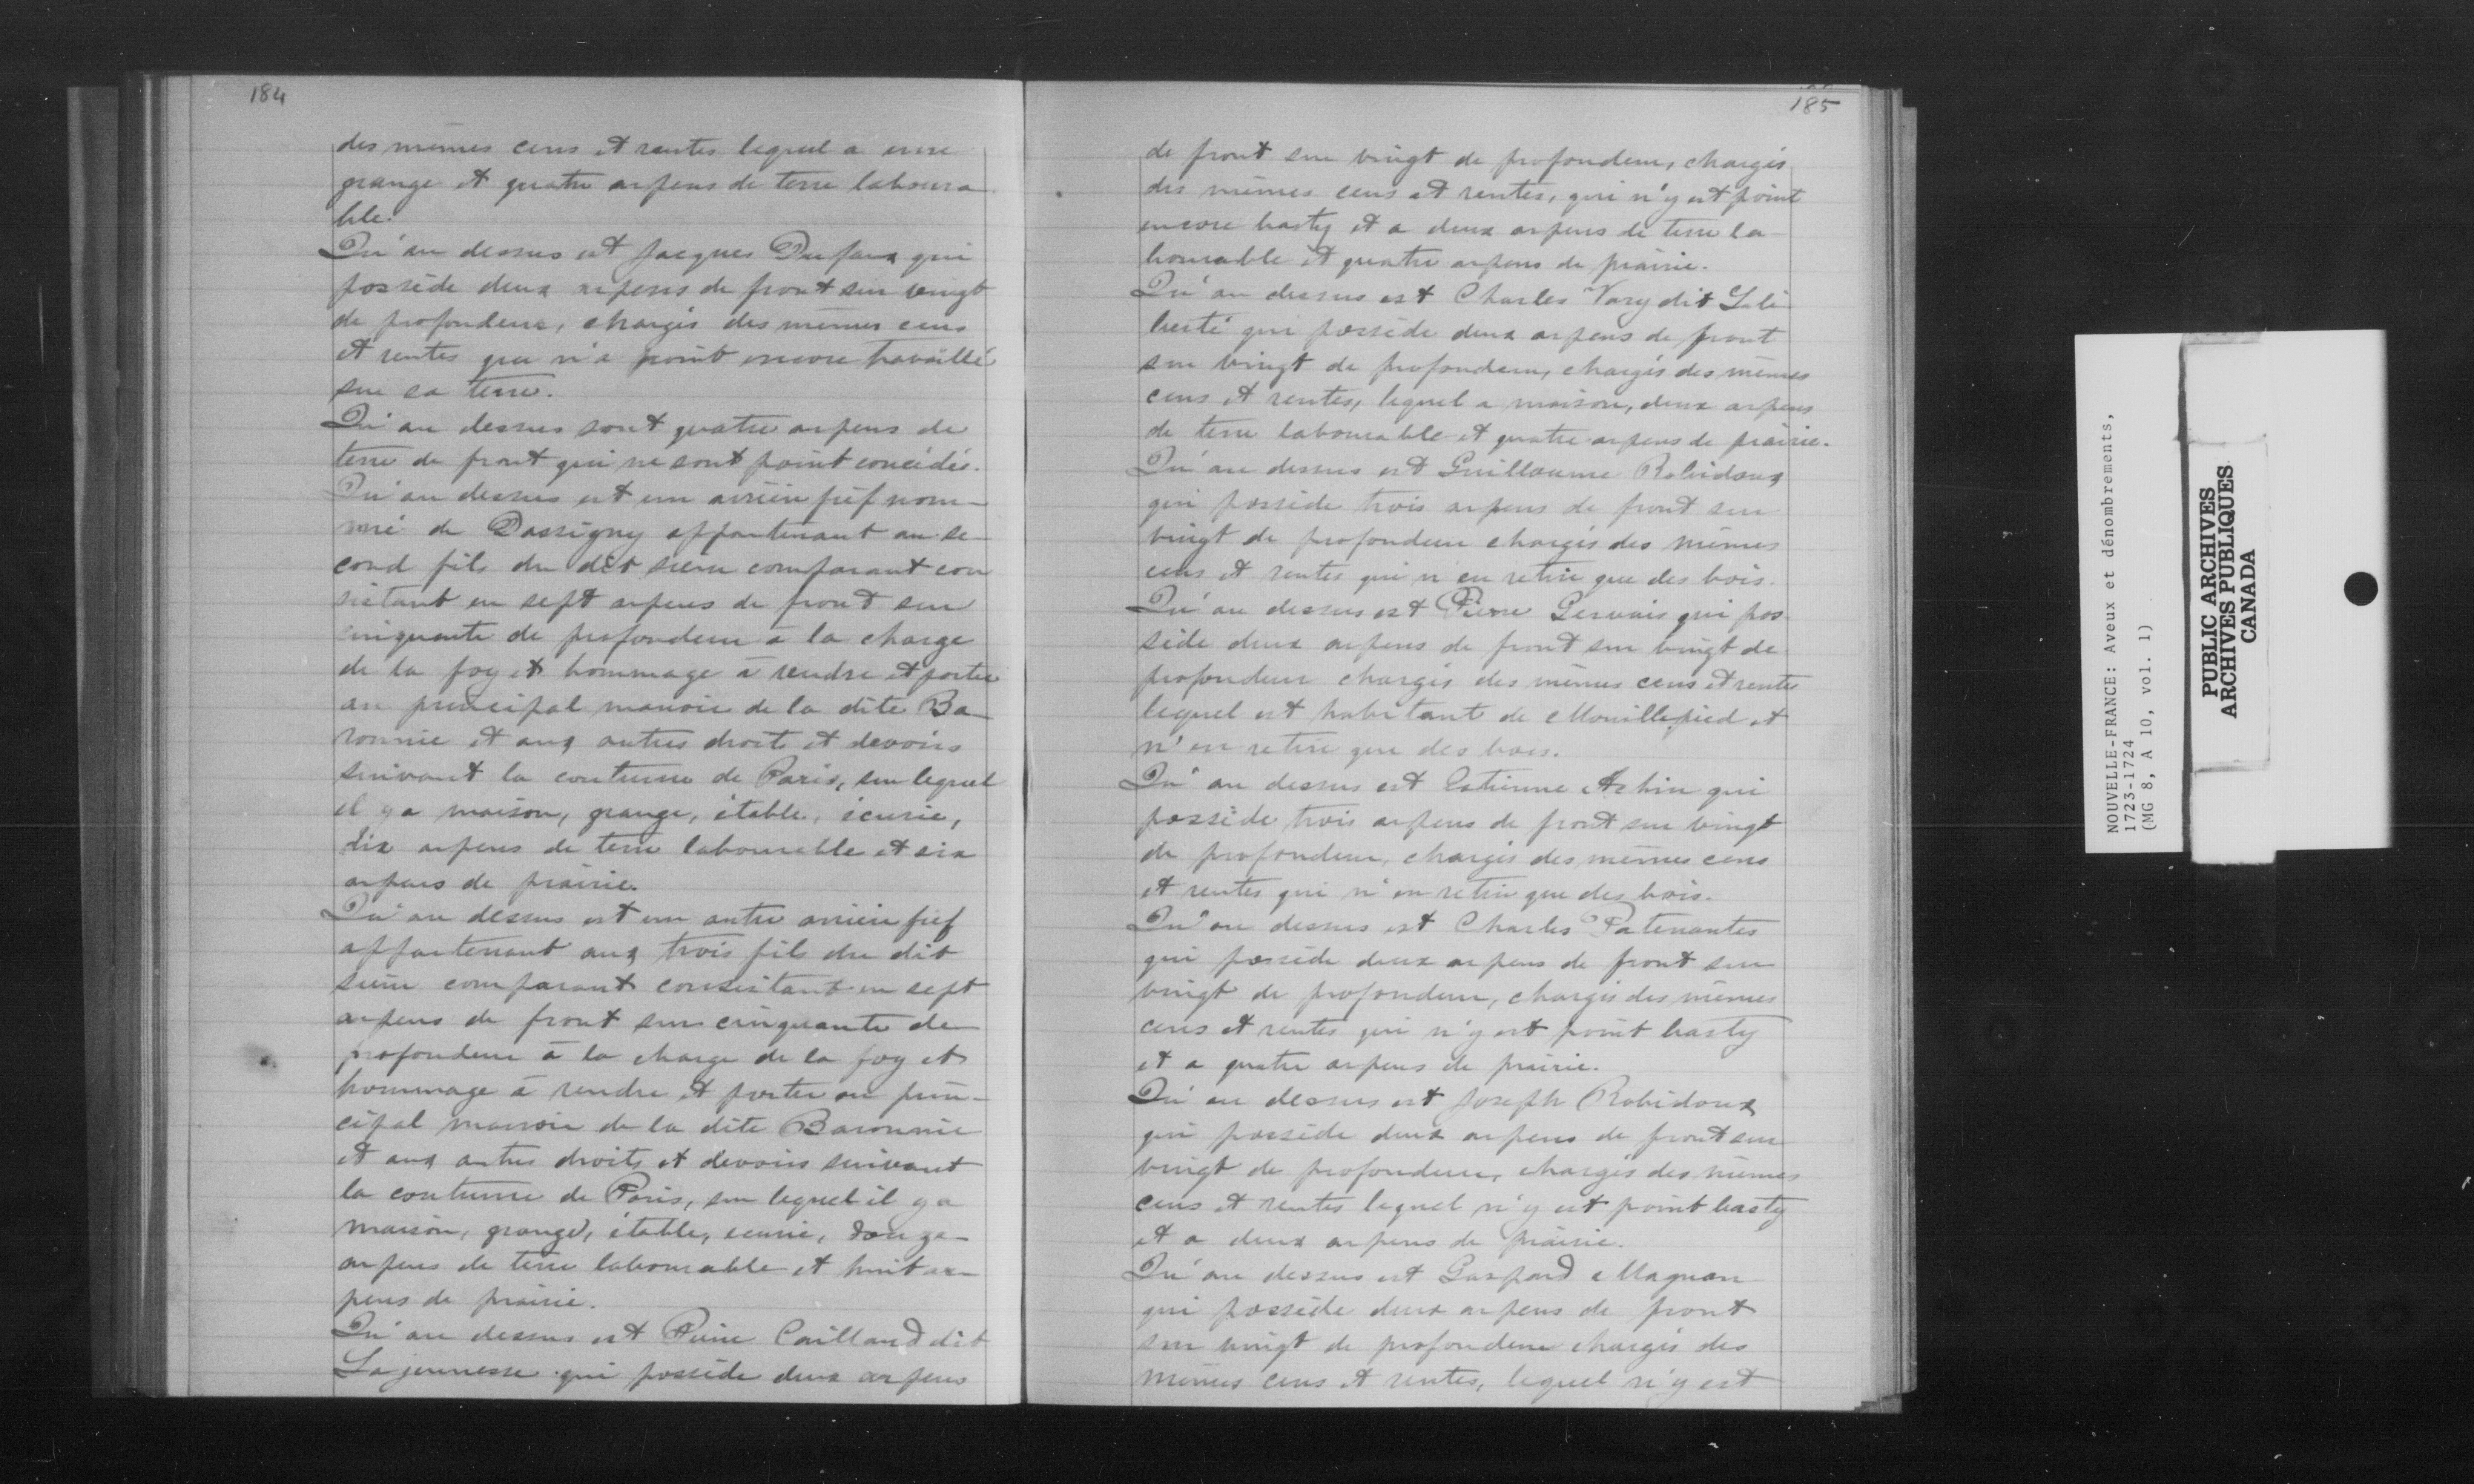 184
des mêmes cens et rentes lequel a une
grange et quatre arpens de terre laboura
ble.
Qu'au dessus est Jacques Dufaux qui
possède deux arpens de front sur vingt
de profondeur, chargés des mêmes cens
et rentes qui n'a point encore travaillé
sur sa terre.
Qu'au dessus sont quatre arpens de
terre de front qui ne sont point concédés.
Qu'au dessus est un arrière fief nom-
mé de Dassigny appartenant au se-
cond fils du dit sieur comparant con
sistant en sept arpens de front sur
cinquante de profondeur à la charge
de la foy et hommage à rendre et porter
au principal manoir de la dite Ba-
ronnie et aux autres droits et devoirs
suivant la coutume de Paris, sur lequel
il y a maison, grange, étable, écurie,
dix arpens de terre labourable et six
arpens de prairie.
Qu'au dessus est un autre arrière fief
appartenant aux trois fils du dit
sieur comparant consistant en sept
arpens de front sur cinquante de
profondeur à la charge de la foy et
hommage à rendre et porter au prin-
cipal manoir de la dite Baronnie
et aux autres droits et devoirs suivant
la coutume de Paris, sur lequel il y a
maison, grange, étable, écurie, douze
arpens de terre labourable et huit ar-
pens de prairie.
Qu'au dessus est Pierre Caillaud dit
La jeunesse qui possède deux arpens
185
de front sur vingt de profondeur, chargés
des mêmes cens et rentes, qui n'y est point
encore basty et a deux arpens de terre la-
bourable et quatre arpens de prairie.
Qu'au dessus est Charles Vary dit Lali
berté qui possède deux arpens de front
sur vingt de profondeur, chargés des mêmes
cens et rentes, lequel a maison, deux arpens
de terre labourable et quatre arpens de prairie.
Qu'au dessus est Guillaume Robidoux
qui possède trois arpens de front sur
vingt de profondeur chargés des mêmes
cens et rentes qui n'en retire que des bois.
Qu'au dessus est Pierre Gervais qui pos-
sède deux arpens de front sur vingt de
profondeur chargés des mêmes cens et rentes
lequel est habitant de Mouillepied et
n'en retire que des bois.
Qu'au dessus est Estienne Achin qui
possède trois arpens de front sur vingt
de profondeur, chargés des mêmes cens
et rentes qui n'en retire que des bois.
Qu'au dessus est Charles Patenantes
qui possède deux arpens de front sur
vingt de profondeur, chargés des mêmes
cens et rentes qui n'y est point basty
et a quatre arpens de prairie.
Qu'au dessus est Joseph Robidoux
qui possède deux arpens de front sur
vingt de profondeur, chargés des mêmes
cens et rentes lequel n'y est point basty
et a deux arpens de prairie.
Qu'au dessus est Gaspard Magnan
qui possède deux arpens de front
sur vingt de profondeur chargés des
mêmes cens et rentes, lequel n'y est
NOUVELLE-FRANCE: Aveux et dénombrements,
1723-1724
(MG 8, A 10, vol. 1)
PUBLIC ARCHIVES
ARCHIVES PUBLIQUES
CANADA